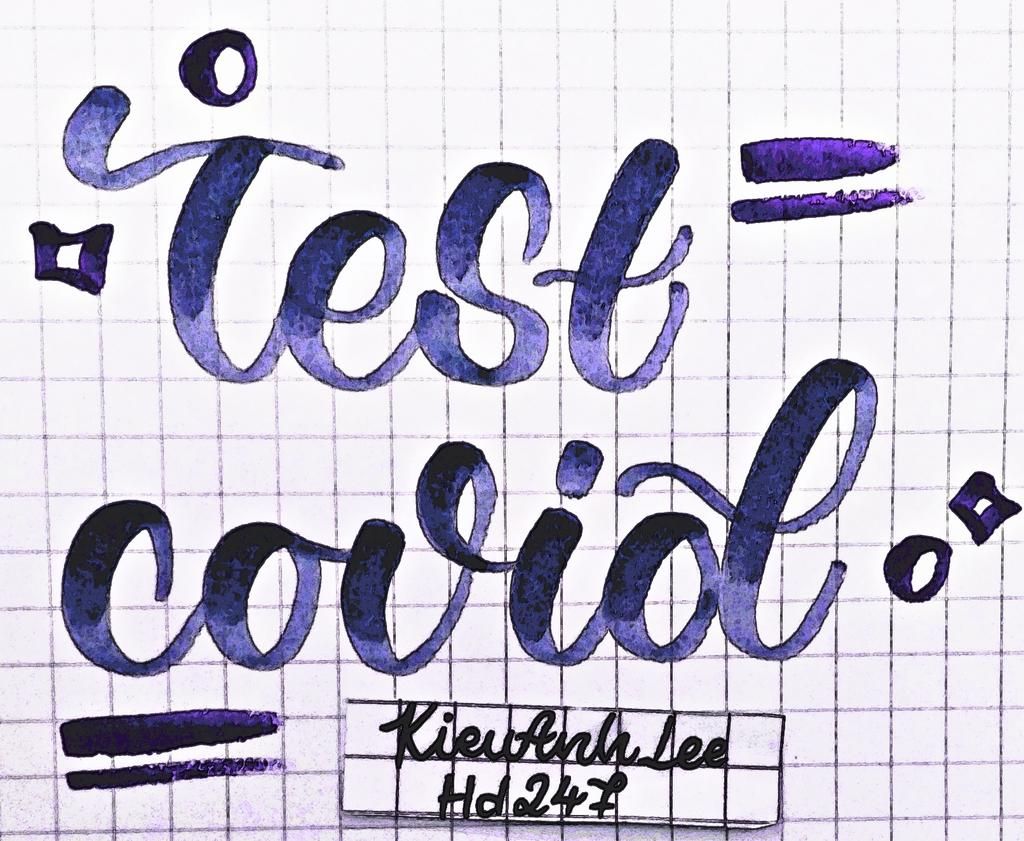 Test
covid
KieuAnh Lee
Hd247